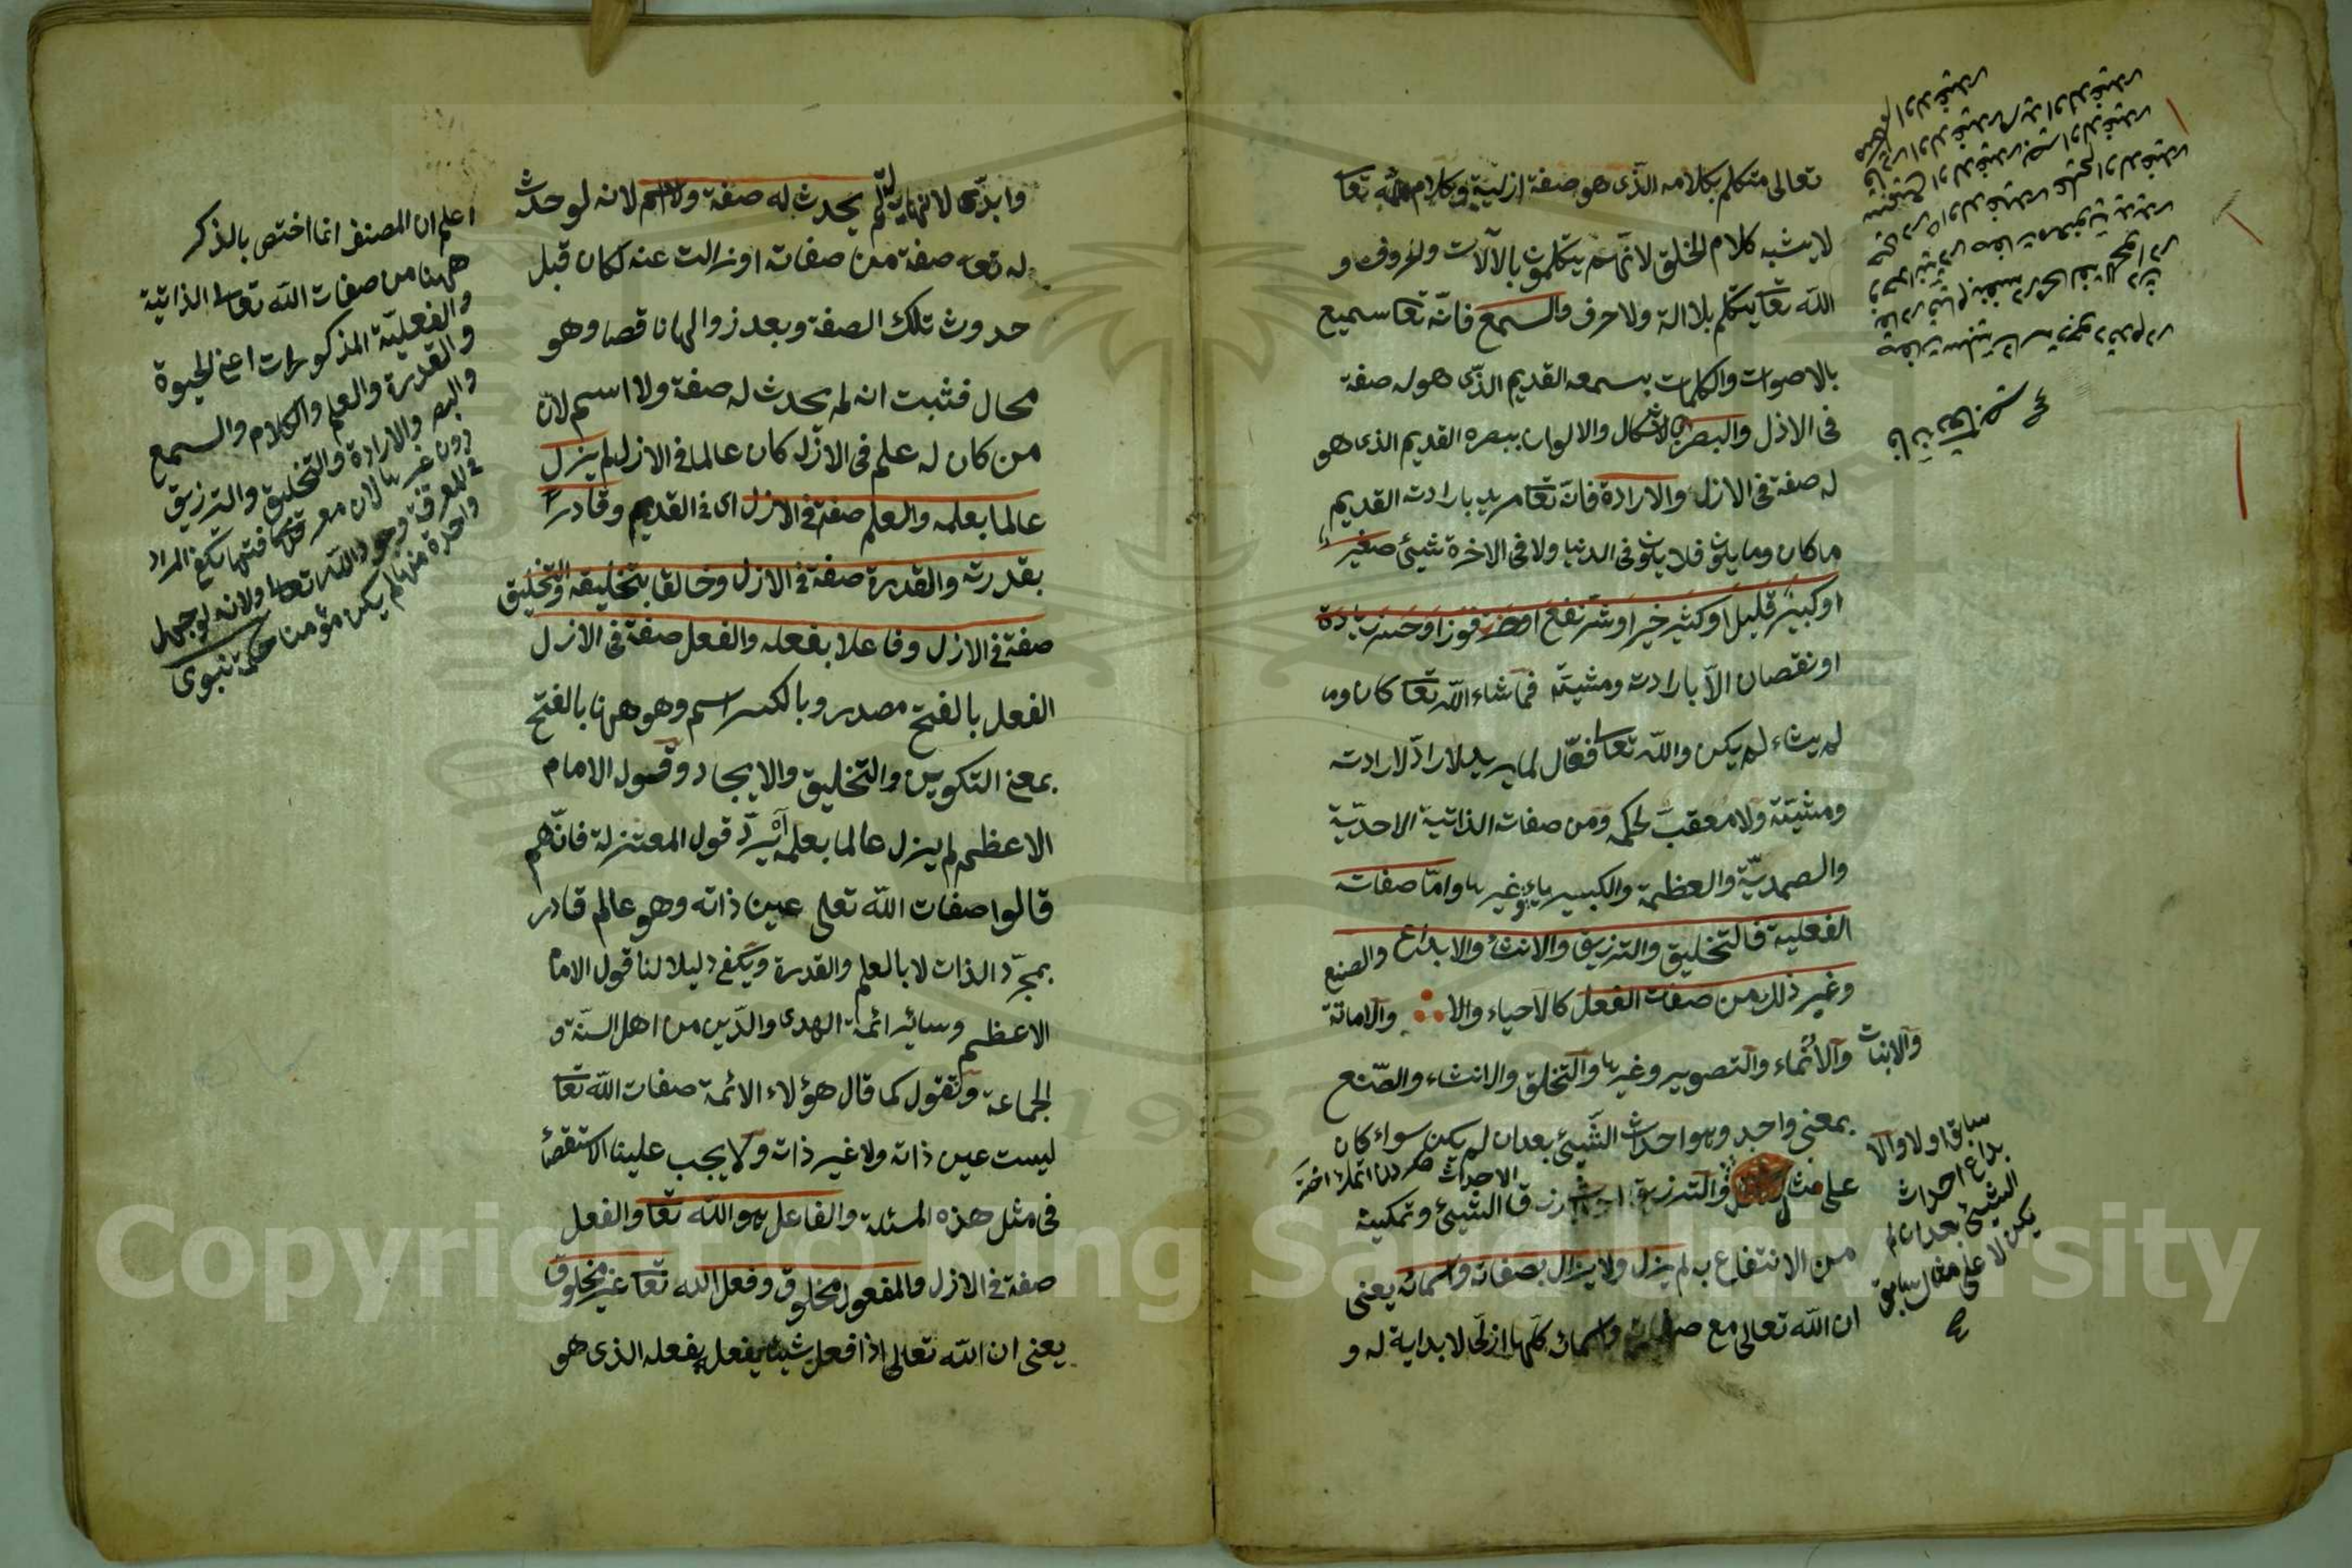 تعالى متكلم بكلامه الذى هو صفة ازلية وكلام الله تعا
لا يشبه كلام الخلق لانهم يتكلمون بالآلات والحروف و
الله تعا يتكلم بلا الة ولا حرف والسمع فانه تعا سميع
بالاصوات والكلمات بسمعه القديم الذى هو له صفة
فى الازل والبصر الاشكال والالوان ببصره القديم الذى هو
له صفة فى الازل والارادة فانه تعا مريد بارادته القديم
ما كان وما يكون فلا يكون فى الدنيا ولا فى الاخرة شيئ صغير
او كبير قليل او كثير خير او شر نفع او ضر فوز او خسر زيادة
او نقصان الا بارادته ومشيته فما شاء الله تعا كان وما
لم يشاء لم يكن والله تعا فعّال لما يريد لا رادّ لارادته
ومشيته ولا معقب لحكمه ومن صفات الذاتية الاحدية
والصمدية والعظمة والكبيرياء وغيرها واما صفاته
الفعلية فالتخليق والترزيق والانشاء والابداع والصنع
وغير ذلك من صفات الفعل كالاحياء والاماتة
والانبات والانماء والتصوير وغيرها والتخلق والانشاء والصنع
بمعنى واحد وهو احداث الشيئ بعد ان لم يكن سواء كان
على مثال والترزيق احداث رزق الشيئ وتمكينه
من الانتفاع به لم يزل ولا يزال بصفاته واسمائه يعنى
ان الله تعالى مع صفاته واسمائه كلها ازلى لا بداية له و
سابق اولا والا
بداع احداث
الشيئ بعد ان لم
يكن لا على مثال سابق
وابدى لا نهاية له لم يحدث له صفة ولا اسم لانه لو حدث
له تعا صفة من صفاته او زالت عنه لكان قبل
حدوث تلك الصفة وبعد زوالها ناقصا وهو
محال فثبت انه لم يحدث له صفة ولا اسم لان
من كان له علم فى الازل كان عالما فى الازل لم يزل
عالما بعلمه والعلم صفة فى الازل اى فى القديم وقادرا
بقدرته والقدرة صفة فى الازل وخالقا بتخليقه والتخليق
صفة فى الازل وفاعلا بفعله والفعل صفة فى الازل
الفعل بالفتح مصدر وبالكسر اسم وهو ههنا بالفتح
بمعنى التكوين والتخليق والايجاد وقول الامام
الاعظم لم يزل عالما بعلمه يردّ قول المعتزلة فانهم
قالوا صفات الله تعلى عين ذاته وهو عالم قادر
بمجرّد الذات لا بالعلم والقدرة ويكفى دليلا لنا قول الامام
الاعظم وسائر ائمة الهدى والدّين من اهل السنّة و
الجماعة ونقول كما قال هؤلاء الائمة صفات الله تعا
ليست عين ذاته ولا غير ذاته ولا يجب علينا الاستقصا
فى مثل هذه المسئلة والفاعل هو الله تعا والفعل
صفة فى الازل والمفعول مخلوق وفعل الله تعا غير مخلوق
يعنى ان الله تعالى اذا فعل شيئا يفعل بفعله الذى هو
اعلم ان المصنف انما اختص بالذكر
ههنا من صفات الله تعالى الذاتية
والفعلية المذكورات اعنى الحيوة
والقدرة والعلم والكلام والسمع
والبصر والارادة والتخليق والترزيق
دون غيرها لان معرفتها تكفى المراد
فى المعرفة وجود الله تعا ولانه لو جهل
واحدة منها لم يكن مؤمنا حكمة نبوى